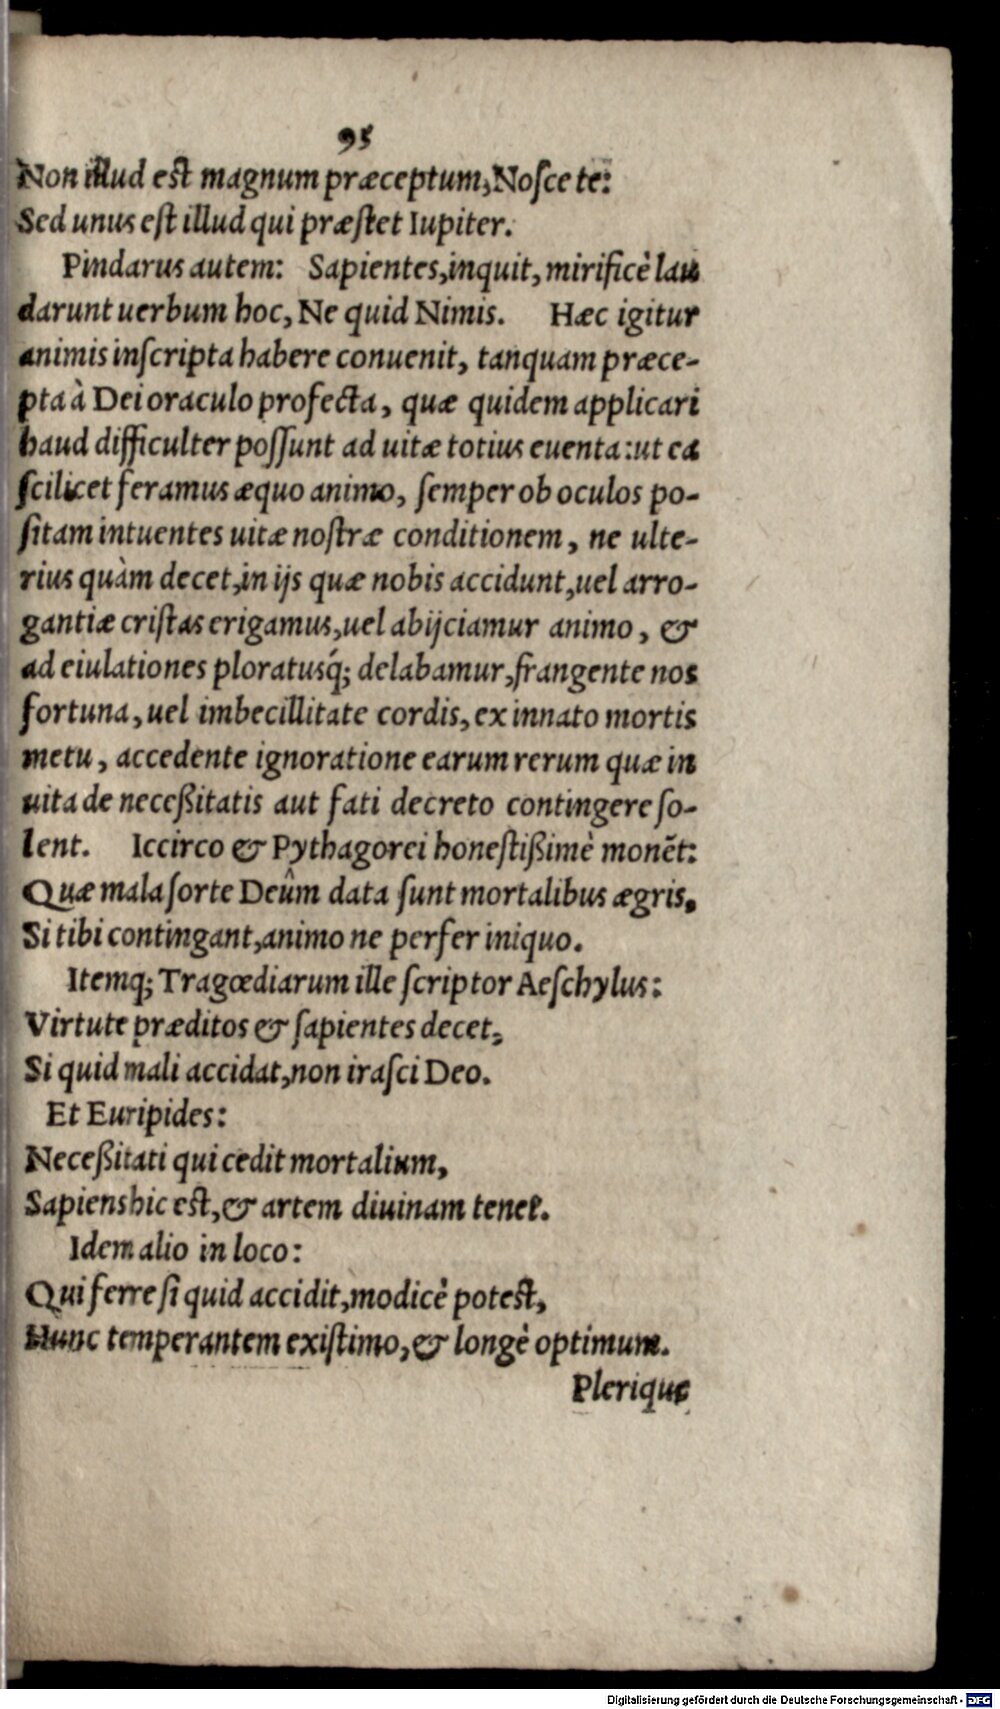 95
Non illud est magnum præceptum, Nosce te:
Sed unus est illud qui præstet Iupiter.
Pindarus autem: Sapientes, inquit, mirificè lau
darunt uerbum hoc, Ne quid Nimis. Hæc igitur
animis inscripta habere conuenit, tanquam præce-
pta à Dei oraculo profecta, quæ quidem applicari
haud difficulter possunt ad uitæ totius euenta: ut ea
scilicet feramus æquo animo, semper ob oculos po-
sitam intuentes uitæ nostræ conditionem, ne ulte-
rius quàm decet, in ijs quæ nobis accidunt, uel arro-
gantiæ cristas erigamus, uel abijciamur animo, &
ad eiulationes ploratusq́; delabamur, frangente nos
fortuna, uel imbecillitate cordis, ex innato mortis
metu, accedente ignoratione earum rerum quæ in
uita de neceßitatis aut fati decreto contingere so-
lent. Iccirco & Pythagorei honestißimè monẽt:
Quæ mala sorte Deûm data sunt mortalibus ægris,
Si tibi contingant, animo ne perfer iniquo.
Itemq; Tragœdiarum ille scriptor Aeschylus:
Virtute præditos & sapientes decet,
Si quid mali accidat, non irasci Deo.
Et Euripides:
Neceßitati qui cedit mortalium,
Sapiens hic est, & artem diuinam tenet.
Idem alio in loco:
Qui ferre si quid accidit, modicè potest,
Hunc temperantem existimo, & longè optimum.
Plerique
Digitalisierung gefördert durch die Deutsche Forschungsgemeinschaft - DFG